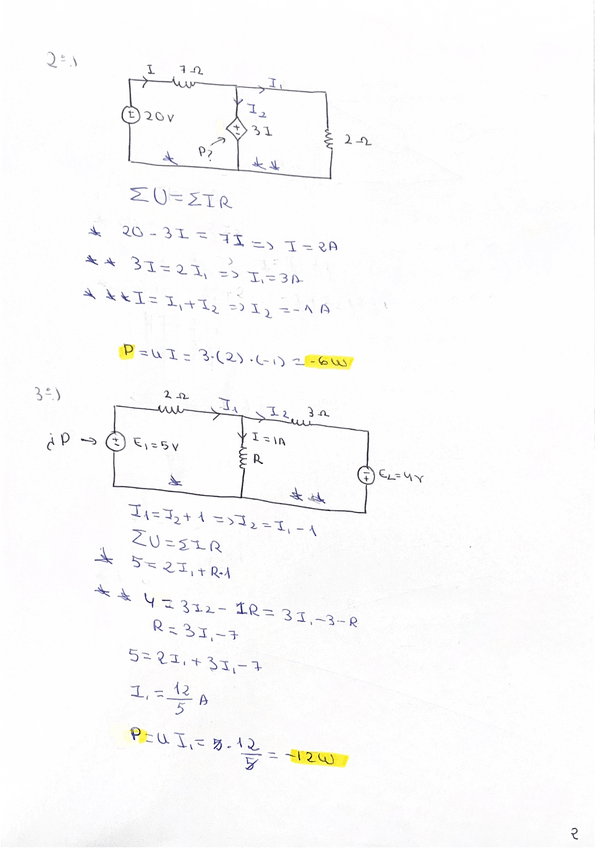 2=)
I 7Ω I₁
20V I₂ 3I 2Ω
P?
* * *
ΣU=ΣIR
* 20-3I = 7I => I=2A
* * 3I=2I₁ => I₁=3A
* * * I=I₁+I₂ => I₂=-1A
P=uI=3·(2)·(-1)=-6W
3=)
2Ω I₁ I₂ 3Ω
¿P → E₁=5V I=1A R E₂=4V
* * *
I₁=I₂+1 => I₂=I₁-1
ΣU=ΣIR
* 5=2I₁+R·1
* * 4=3I₂-IR=3I₁-3-R
R=3I₁-7
5=2I₁+3I₁-7
I₁=12/5 A
P=uI₁=5·12/5=-12W
2